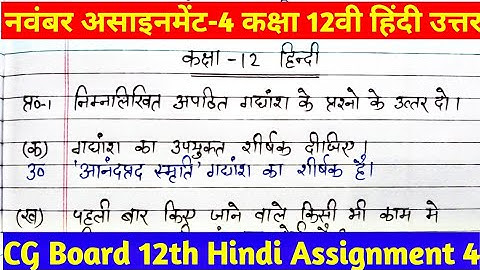 नवंबर असाइनमेंट-4 कक्षा 12वी हिंदी उत्तर
कक्षा -12 हिन्दी
प्र०-1 निम्नलिखित अपठित गद्यांश के प्रश्नो के उत्तर दो।
(क) गद्यांश का उपयुक्त शीर्षक दीजिए।
उ० 'आनंदप्रद स्मृति' गद्यांश का शीर्षक है।
(ख) पहली बार किए जाने वाले किसी भी काम मे
CG Board 12th Hindi Assignment 4